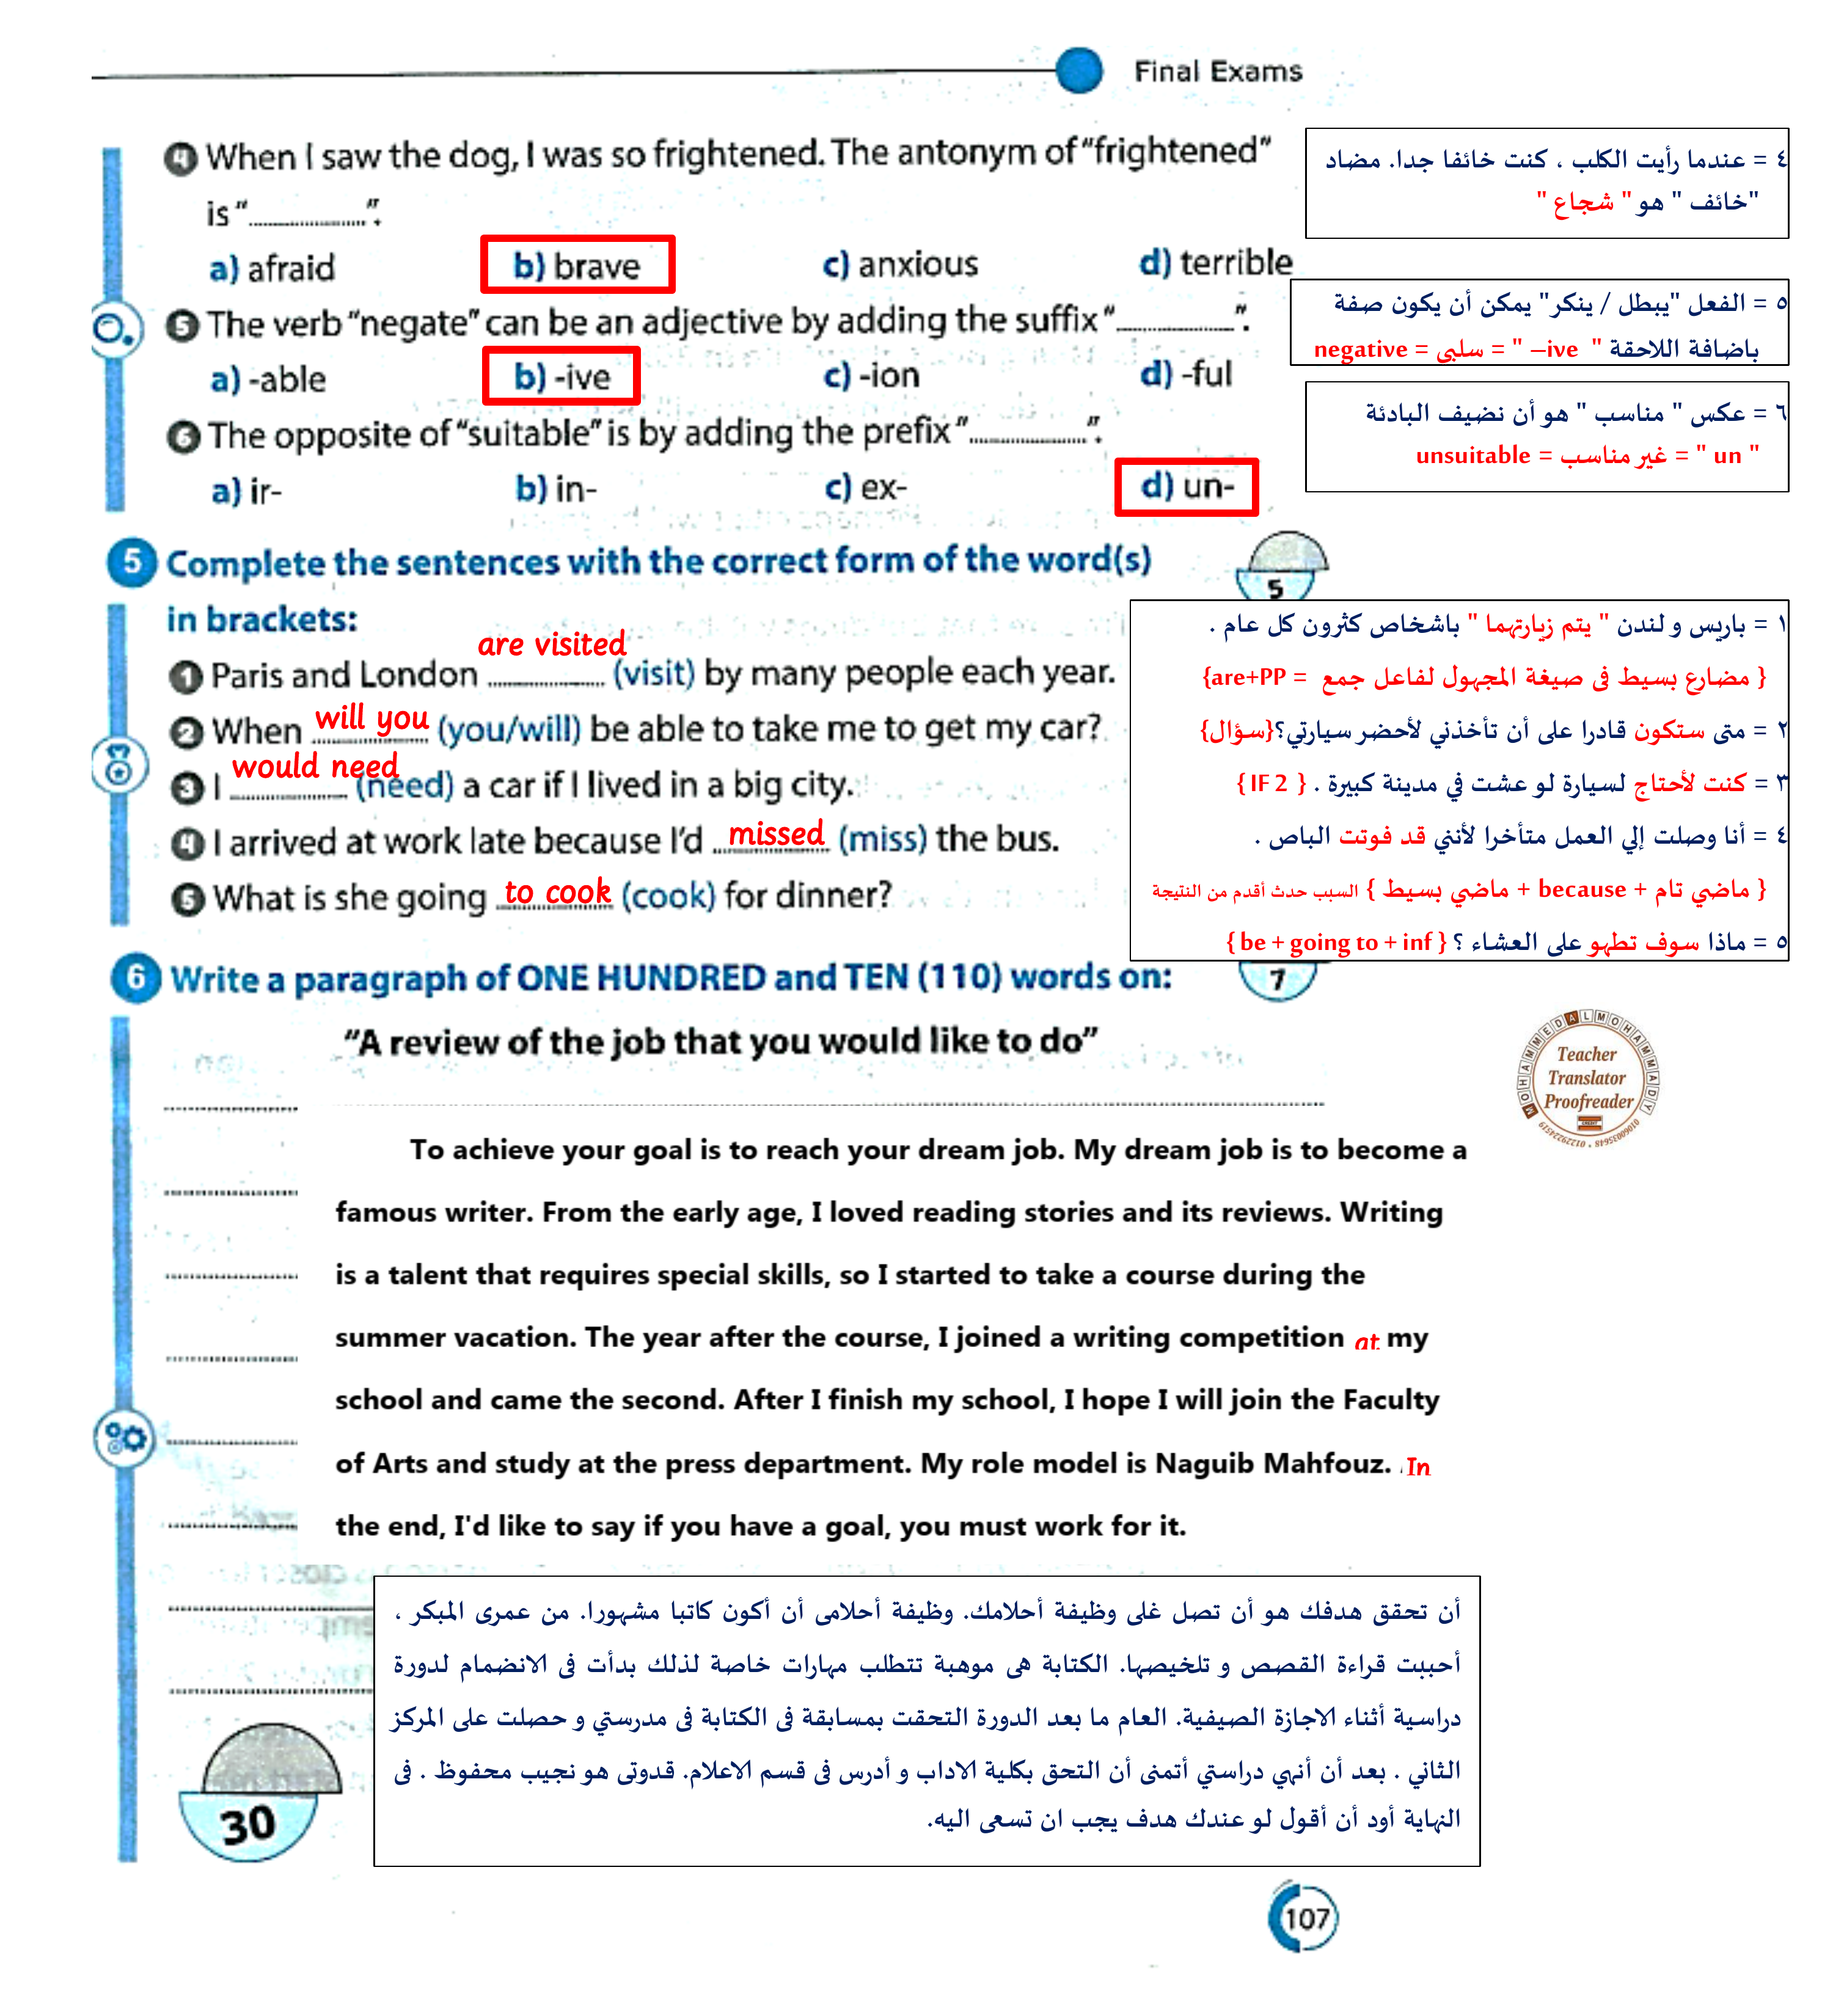 Final Exams
4 When I saw the dog, I was so frightened. The antonym of "frightened"
is "....................".
a) afraid b) brave c) anxious d) terrible
٤ = عندما رأيت الكلب ، كنت خائفا جدا. مضاد
"خائف " هو " شجاع "
5 The verb "negate" can be an adjective by adding the suffix "....................".
a) -able b) -ive c) -ion d) -ful
٥ = الفعل "يبطل / ينكر" يمكن أن يكون صفة
باضافة اللاحقة " –ive " = سلبى = negative
6 The opposite of "suitable" is by adding the prefix "....................".
a) ir- b) in- c) ex- d) un-
٦ = عكس " مناسب " هو أن نضيف البادئة
" un " = غير مناسب = unsuitable
5 Complete the sentences with the correct form of the word(s)
in brackets:
5
are visited
1 Paris and London .................... (visit) by many people each year.
will you
2 When .................... (you/will) be able to take me to get my car?
would need
3 I .................... (need) a car if I lived in a big city.
4 I arrived at work late because I'd missed (miss) the bus.
5 What is she going to cook (cook) for dinner?
١ = باريس و لندن " يتم زيارتهما " باشخاص كثرون كل عام .
{ مضارع بسيط فى صيغة المجهول لفاعل جمع = are+PP}
٢ = متى ستكون قادرا على أن تأخذني لأحضر سيارتي؟{سؤال}
٣ = كنت لأحتاج لسيارة لو عشت في مدينة كبيرة . { IF 2 }
٤ = أنا وصلت إلي العمل متأخرا لأنني قد فوتت الباص .
{ ماضي تام + because + ماضي بسيط } السبب حدث أقدم من النتيجة
٥ = ماذا سوف تطهو على العشاء ؟ { be + going to + inf }
6 Write a paragraph of ONE HUNDRED and TEN (110) words on:
7
"A review of the job that you would like to do"
MOHAMMED ALMOHAMMADY
Teacher
Translator
Proofreader
To achieve your goal is to reach your dream job. My dream job is to become a
famous writer. From the early age, I loved reading stories and its reviews. Writing
is a talent that requires special skills, so I started to take a course during the
summer vacation. The year after the course, I joined a writing competition at my
school and came the second. After I finish my school, I hope I will join the Faculty
of Arts and study at the press department. My role model is Naguib Mahfouz. In
the end, I'd like to say if you have a goal, you must work for it.
أن تحقق هدفك هو أن تصل غلى وظيفة أحلامك. وظيفة أحلامى أن أكون كاتبا مشهورا. من عمرى المبكر ،
أحببت قراءة القصص و تلخيصها. الكتابة هى موهبة تتطلب مهارات خاصة لذلك بدأت فى الانضمام لدورة
دراسية أثناء الاجازة الصيفية. العام ما بعد الدورة التحقت بمسابقة فى الكتابة فى مدرستي و حصلت على المركز
الثاني . بعد أن أنهي دراستي أتمنى أن التحق بكلية الاداب و أدرس فى قسم الاعلام. قدوتى هو نجيب محفوظ . فى
النهاية أود أن أقول لو عندك هدف يجب ان تسعى اليه.
30
107